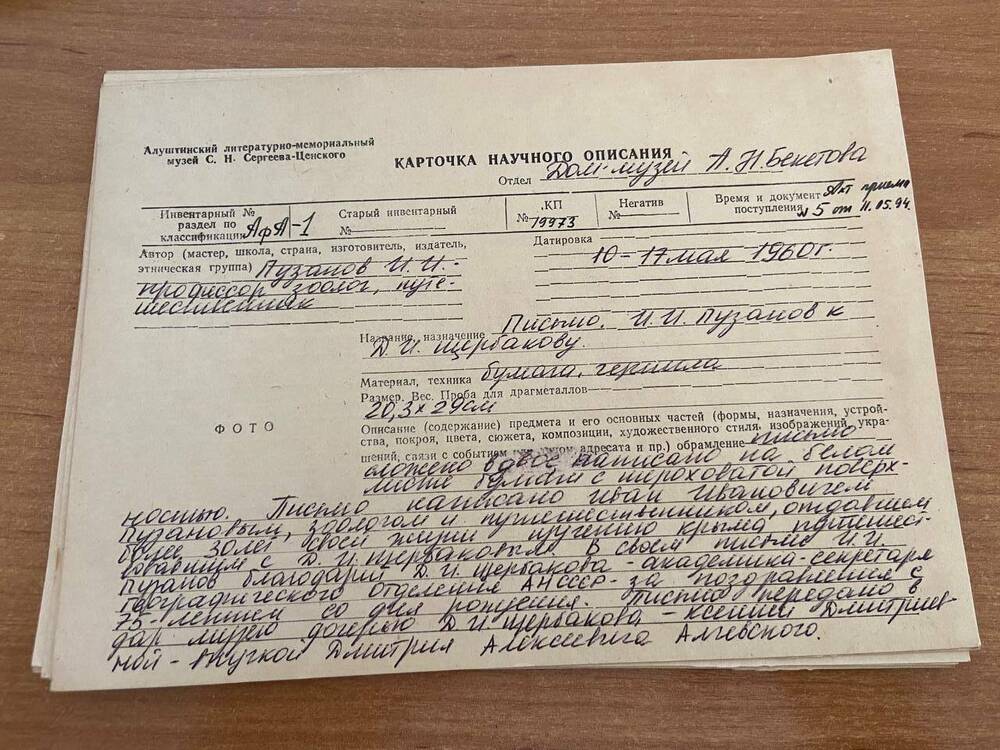 Алуштинский литературно-мемориальный
музей С. Н. Сергеева-Ценского
КАРТОЧКА НАУЧНОГО ОПИСАНИЯ
Отдел Дом-музей А.Н. Бекетова
Инвентарный №
раздел по
классификации АфА-1
Старый инвентарный
№
КП
№ 19973
Негатив
№
Время и документ Акт приема
поступления №5 от 11.05.94.
Автор (мастер, школа, страна, изготовитель, издатель,
этническая группа) Пузанов И.И. -
профессор зоолог, путе-
шественник
Датировка
10-17 мая 1960г.
Название, назначение Письмо. И.И. Пузанов к
Д.И. Щербакову.
Материал, техника бумага, чернила
Размер. Вес. Проба для драгметаллов
20,3 х 29 см
ФОТО
Описание (содержание) предмета и его основных частей (формы, назначения, устрой-
ства, покроя, цвета, сюжета, композиции, художественного стиля, изображений, укра-
шений, связи с событием или лицом, адресата и пр.) обрамление письмо
сложено вдвое написано на белом
листе бумаги с шероховатой поверх-
ностью. Письмо написано Иван Ивановичем
Пузановым, зоологом и путешественником, отдавшем
более 30 лет своей жизни изучению Крыма путешес-
вовавшим с Д.И. Щербаковым. В своем письме И.И.
Пузанов благодарил Д.И. Щербакова - академика-секретаря
географического отделения АН СССР - за поздравления с
75-летием со дня рождения. Письмо передано в
дар музею дочерью Д.И. Щербакова - Ксенией Дмитриев-
ной - внучкой Дмитрия Алексеевича Алчевского.